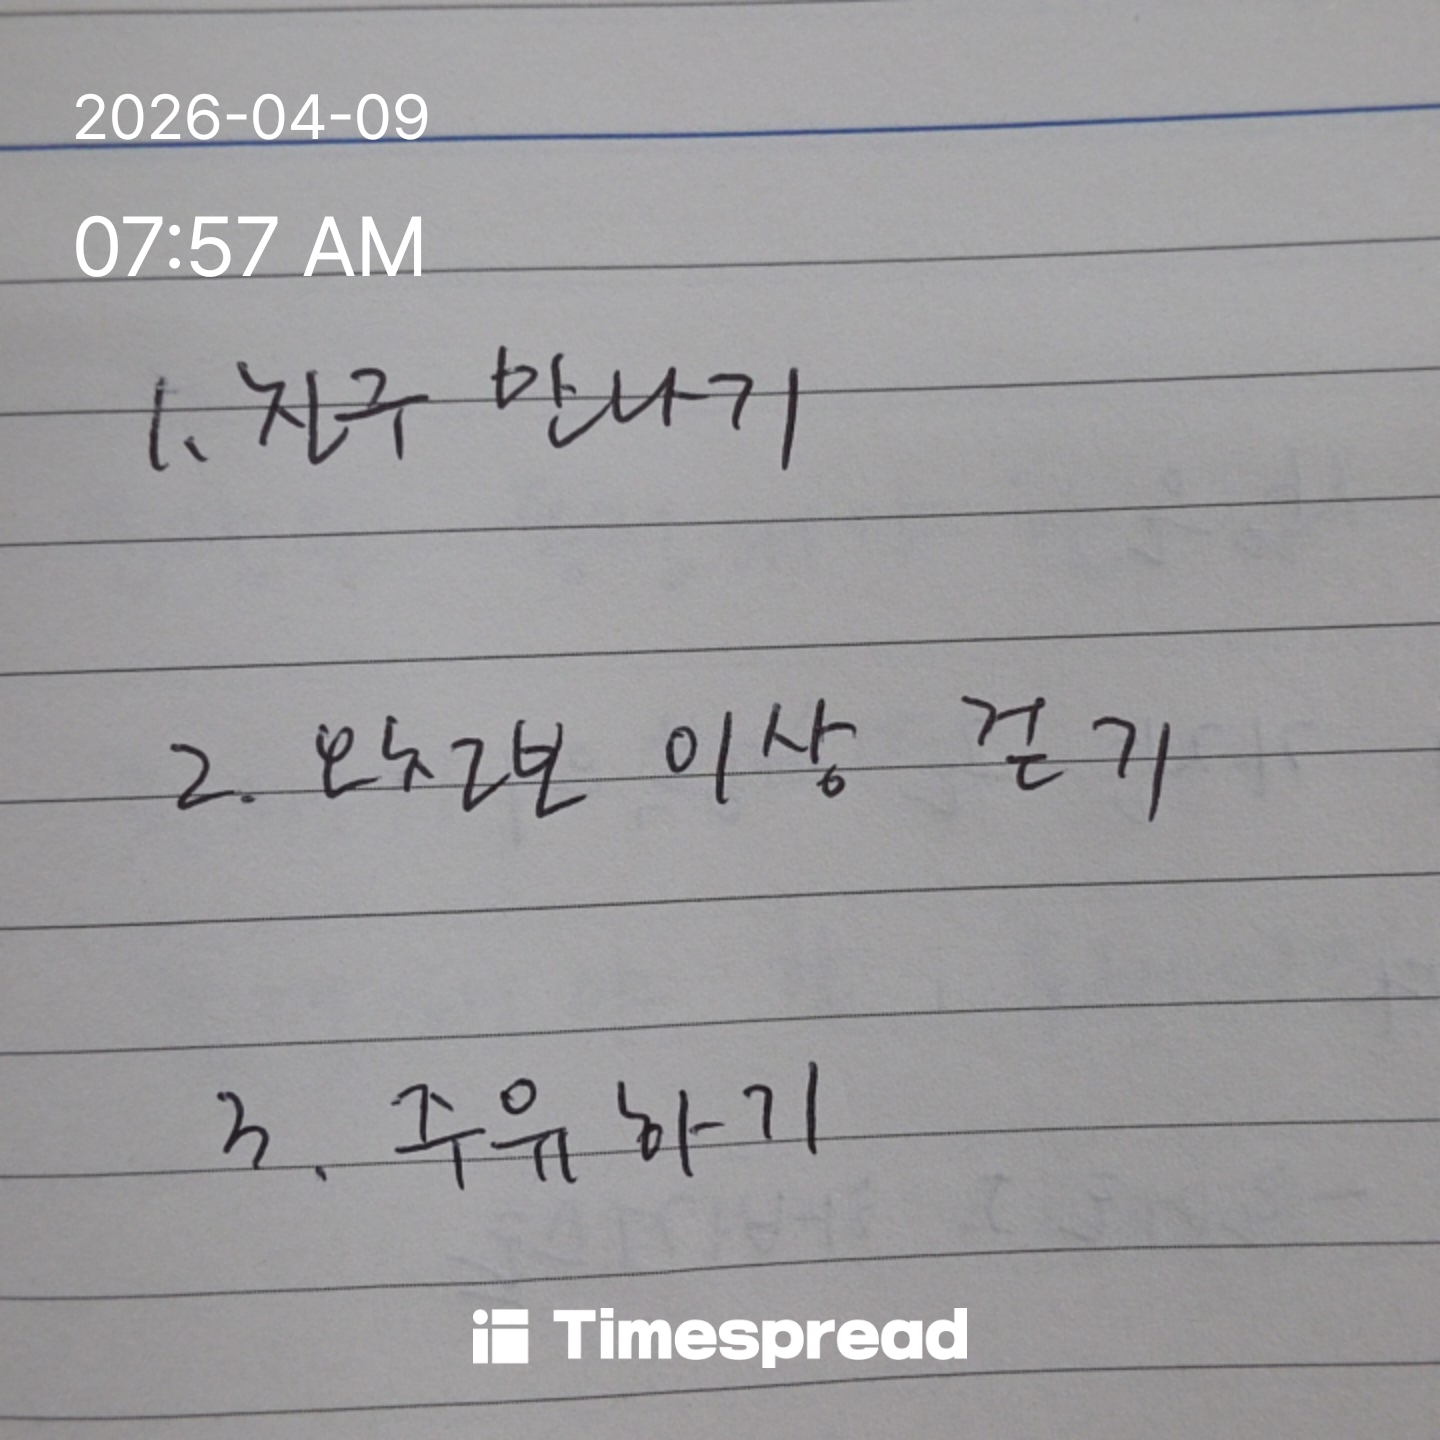 2026-04-09
07:57 AM
1. 친구 만나기
2. 이상 걷기
3. 주유하기
Timespread